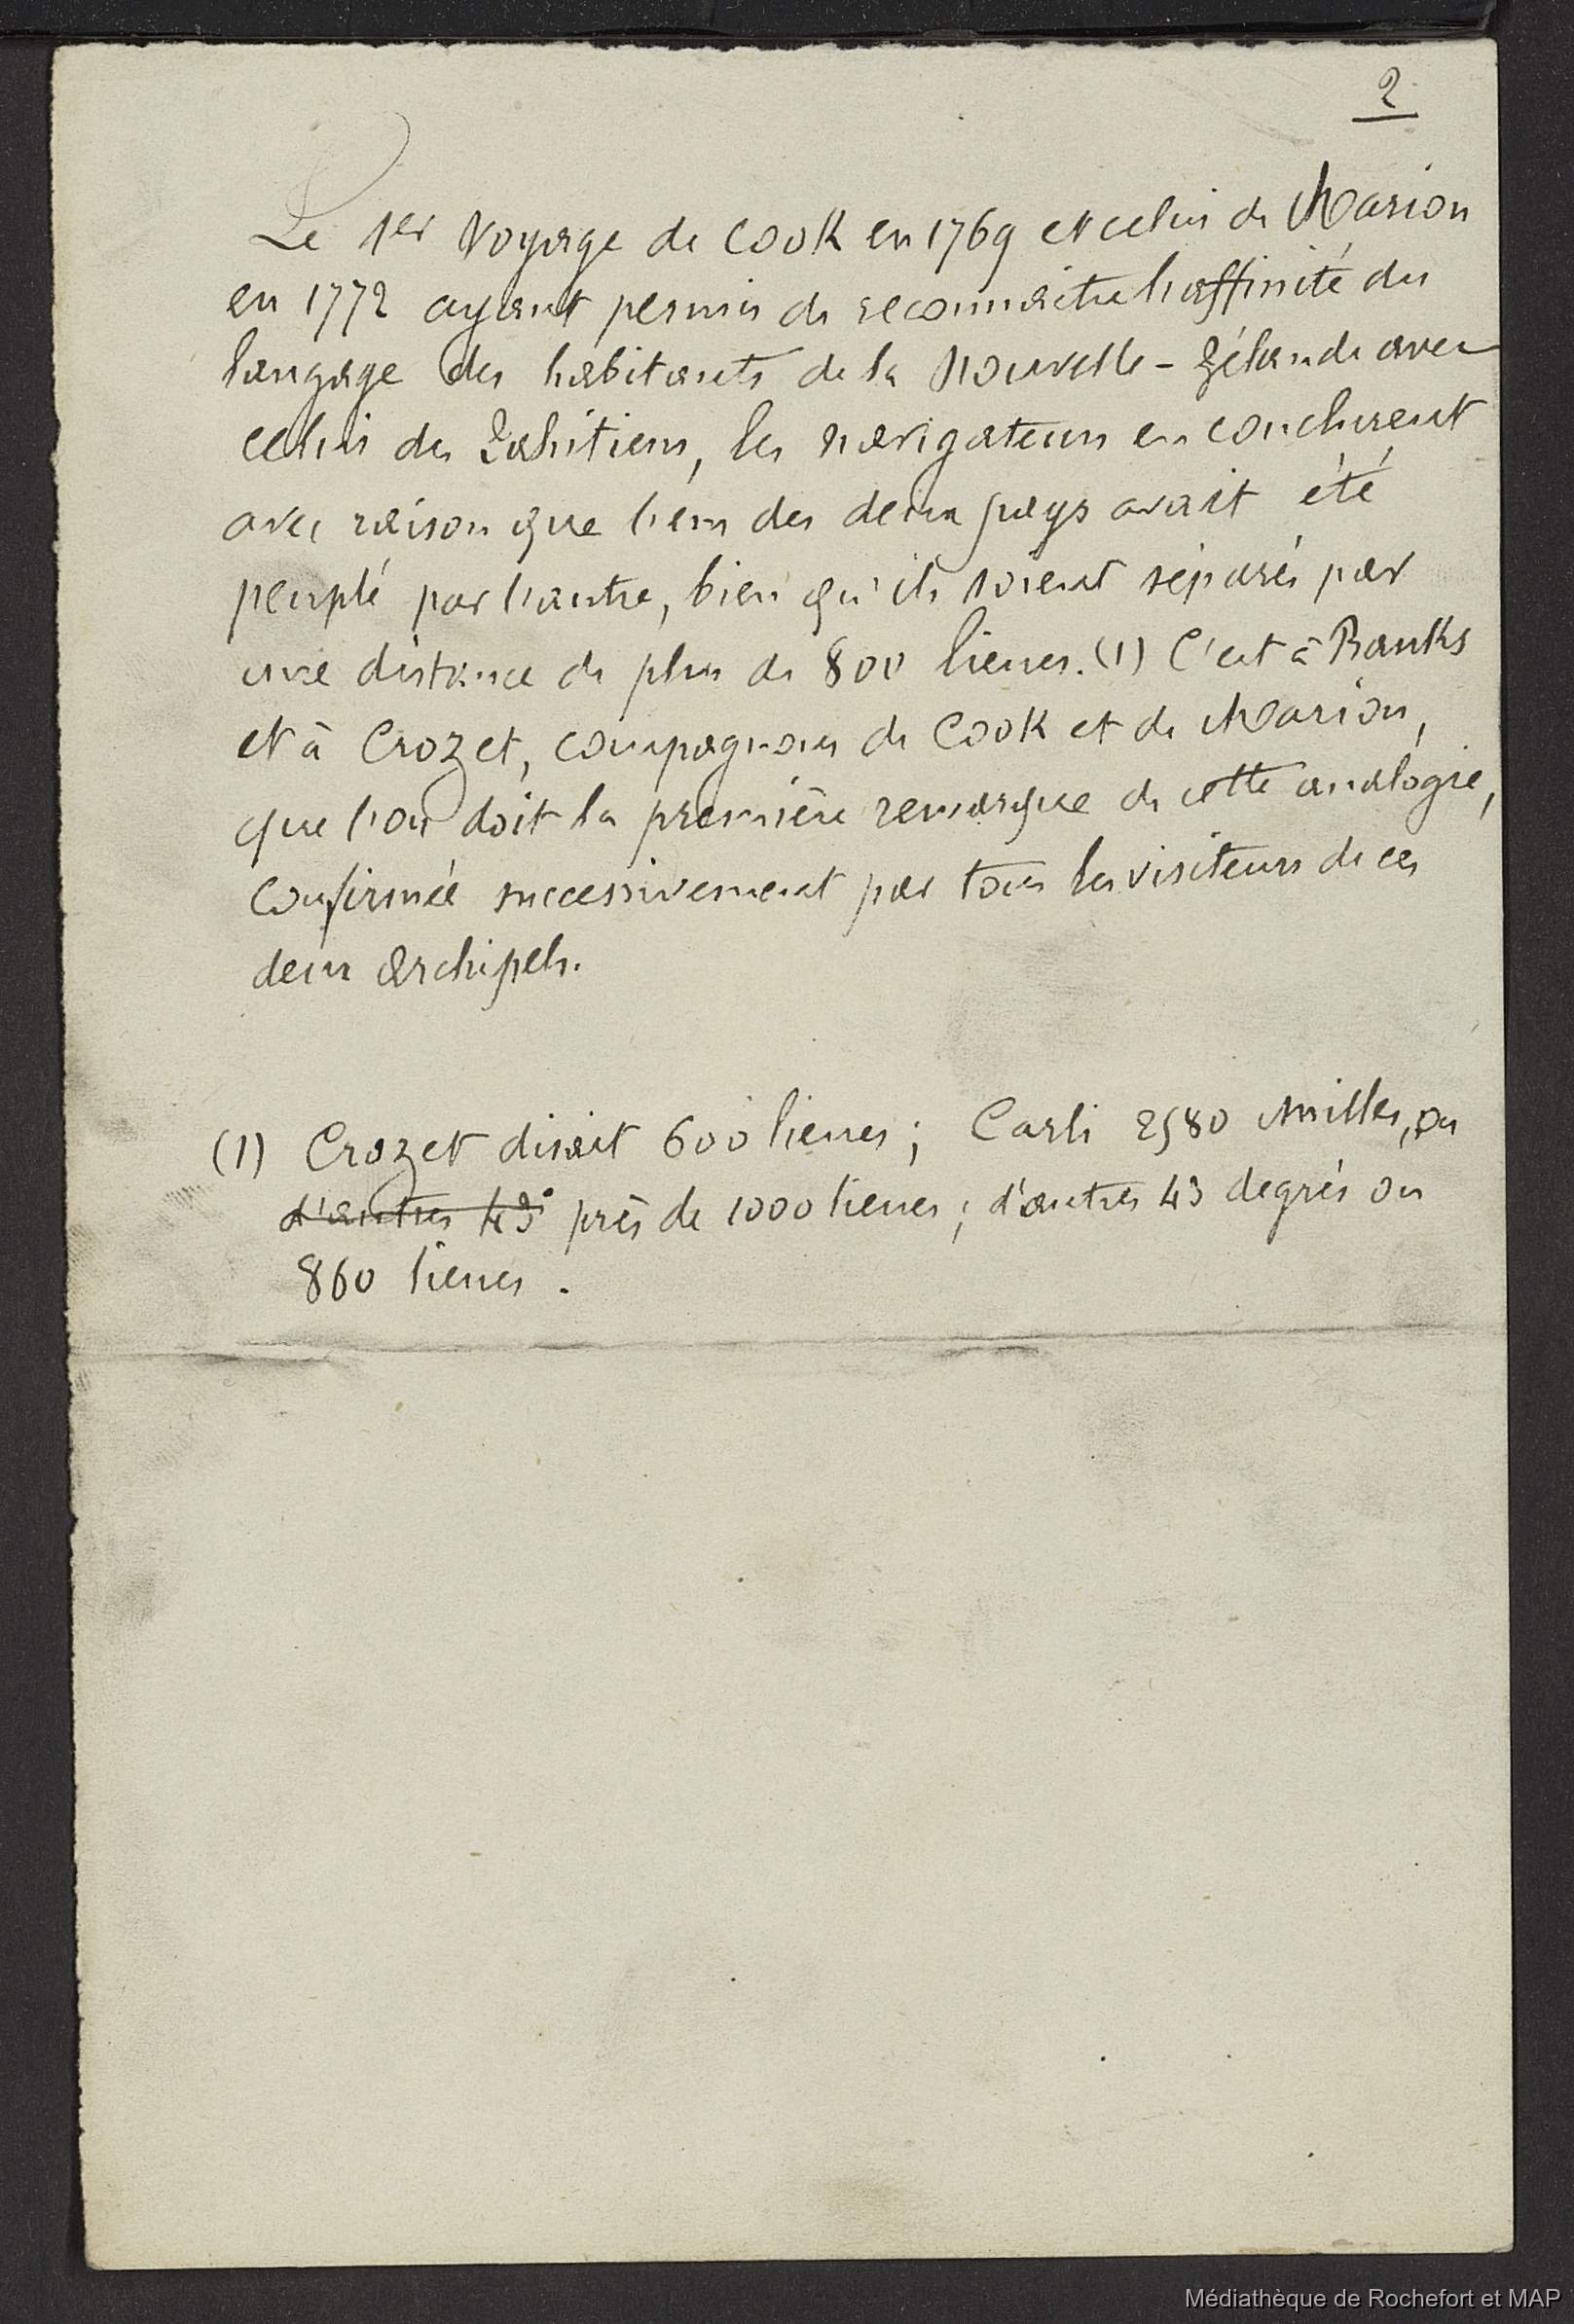 2
Le 1er Voyage de Cook en 1769 et celui de Marion
en 1772 ayant permis de reconnaître l'affinité du
langage des habitants de la Nouvelle-Zélande avec
celui des Tahitiens, les navigateurs en conclurent
avec raison que l'un des deux pays avait été
peuplé par l'autre, bien qu'ils soient séparés par
une distance de plus de 800 lieues. (1) C'est à Banks
et à Crozet, compagnons de Cook et de Marion,
que l'on doit la première remarque de cette analogie,
confirmée successivement par tous les visiteurs de ces
deux archipels.
(1) Crozet disait 600 lieues; Carli 2580 milles, ou
d'autres 43° près de 1000 lieues; d'autres 43 degrés ou
860 lieues.
Médiathèque de Rochefort et MAP